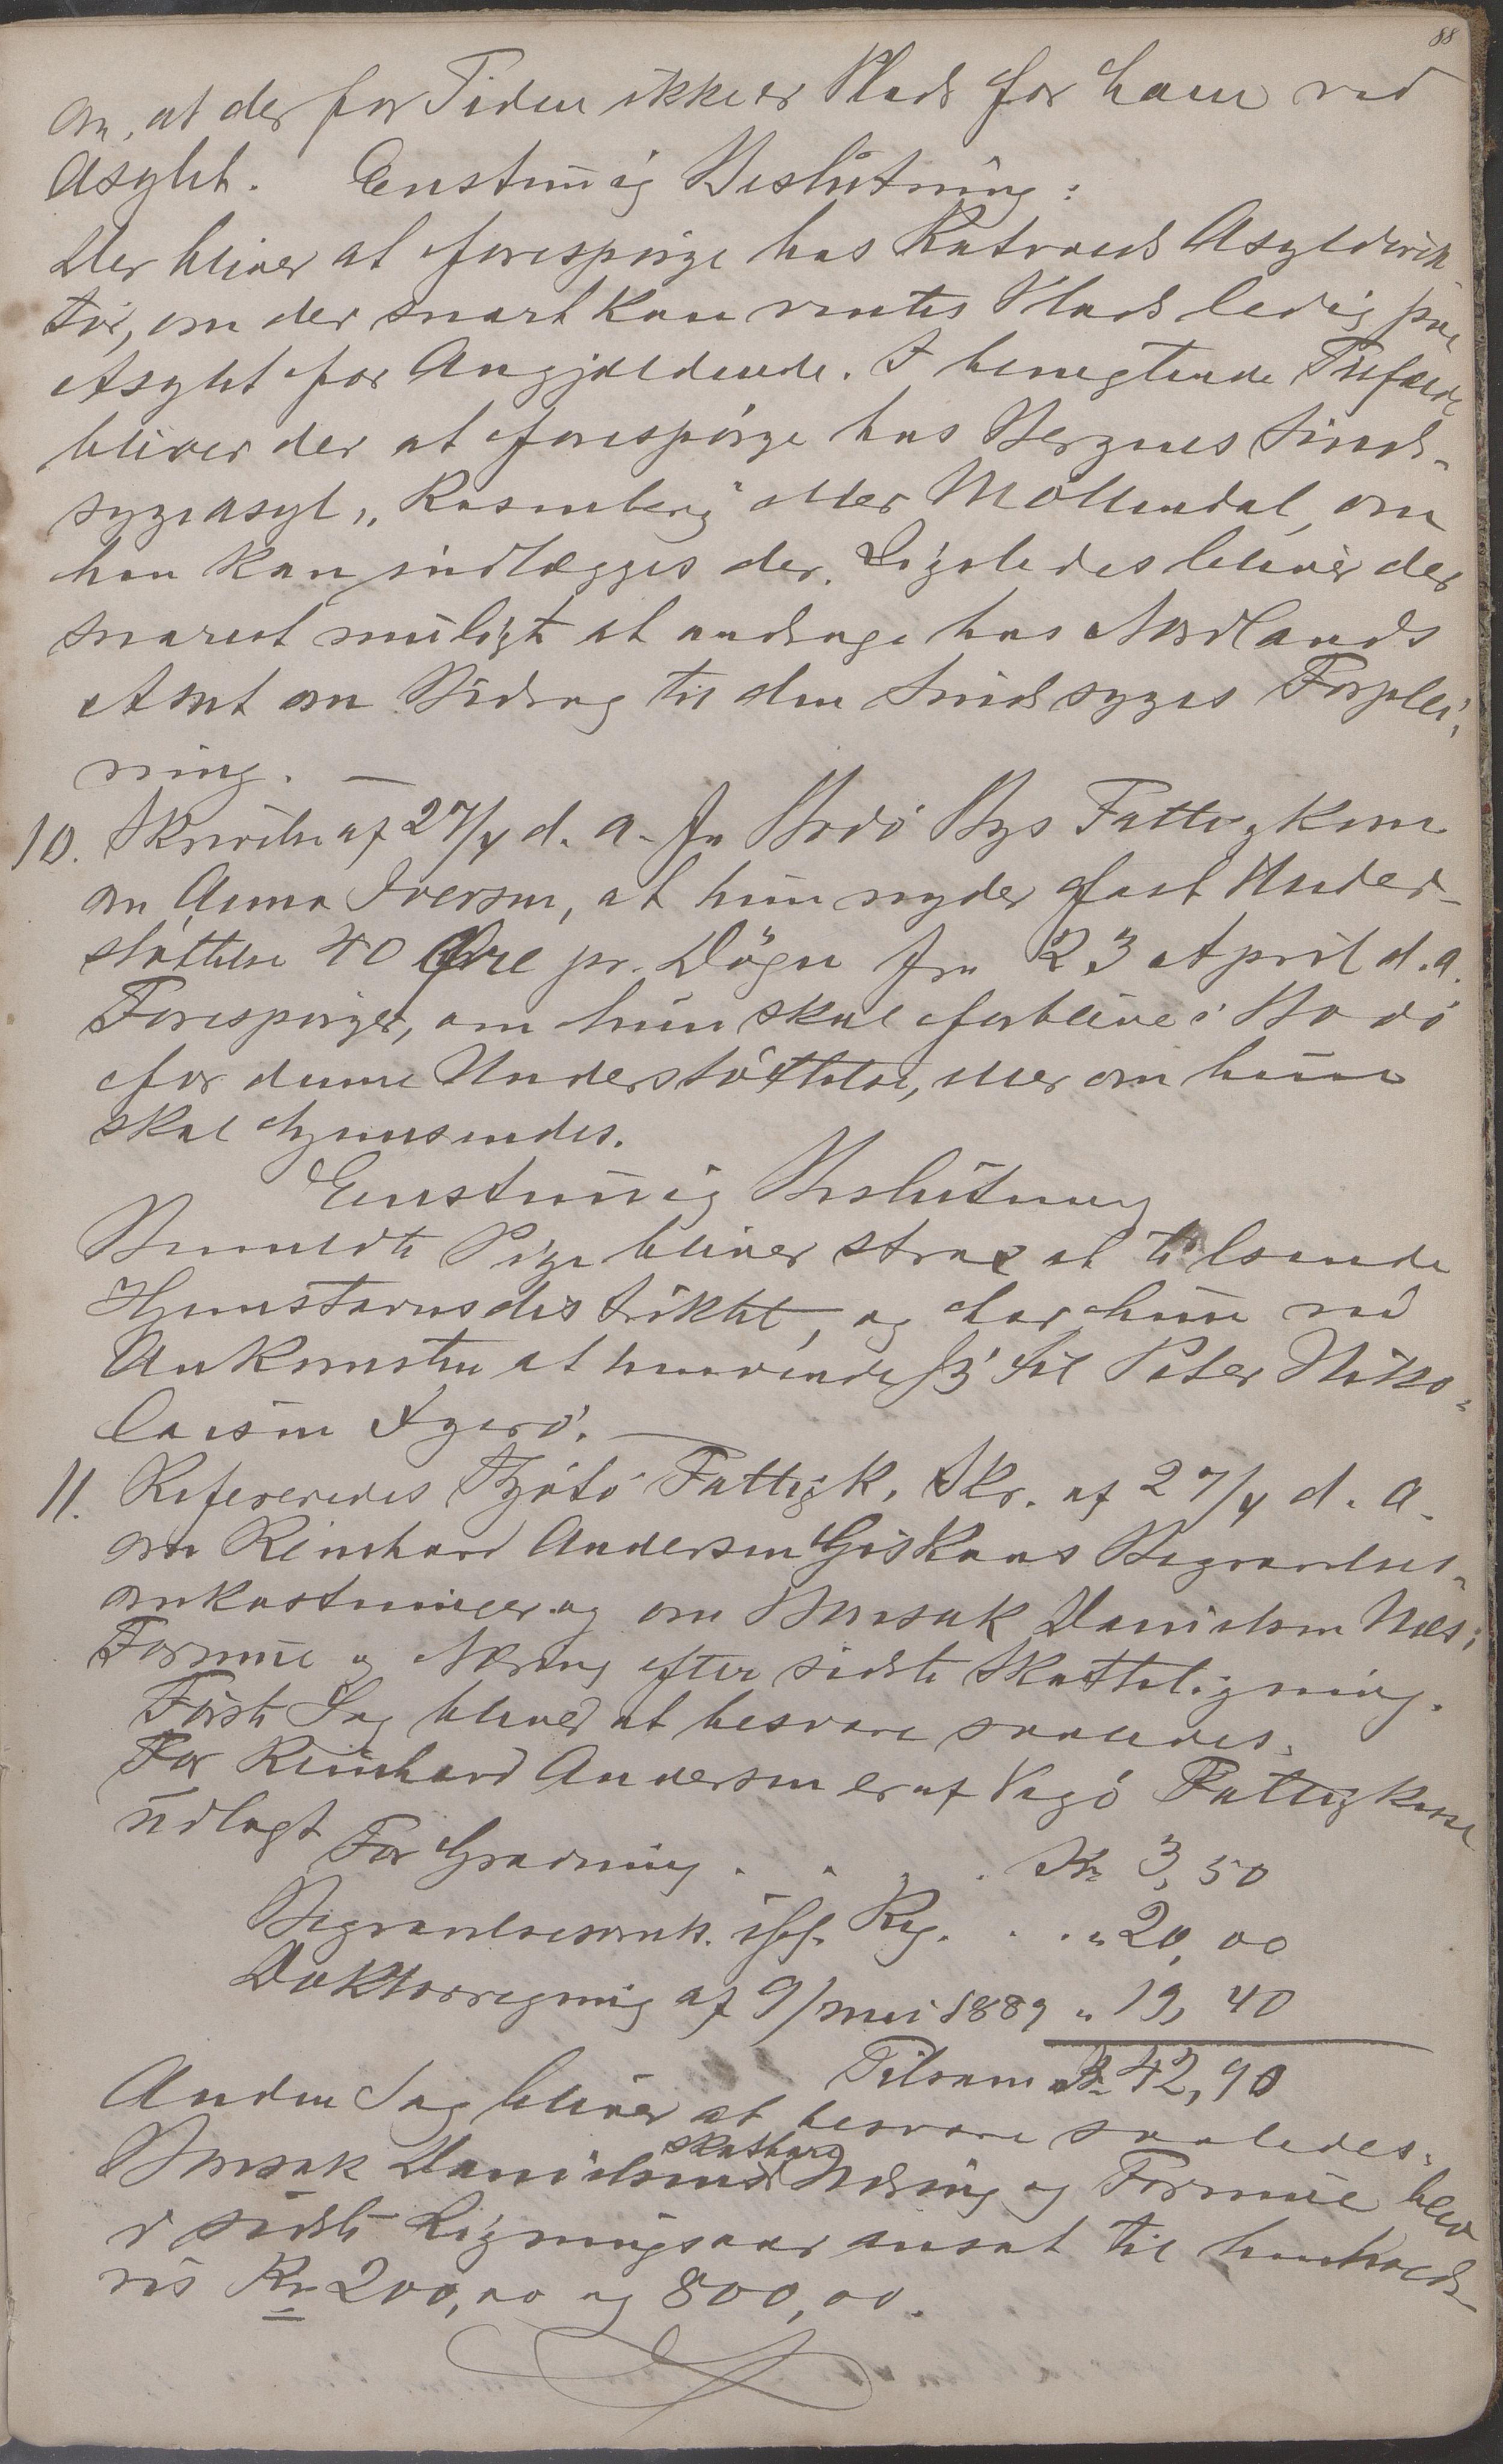 88
om, at der for Tiden ikke er Plads for ham ved
Asylet. Enstemmig Beslutning:
Der bliver at forespørge hos Rotvolds Asyldirek
tør, om der snart kan ventes Plads ledig paa
Asylet for Angjældende. I benegtende Tilfælde
bliver der at forespørge hos Bergens Sinds-
sygeasyl, "Rosenberg" eller Möllendal, om
han kan indlægges der. Ligeledes bliver der
snarest muligt at andrage hos Nordlands
Amt om Bidrag til den Sindssyges Forplei-
ning. —
10. Skrivelse af 27/4 d. a. fra Bodö Bys Fattigkom
om Anna Iversen, at hun nyder fast Under-
støttelse 40 Øre pr. Døgn fra 23 April d. a.
Forespørger, om hun skal forblive i Bodö
for denne Understøttelse, eller om hun
skal hjemsendes.
Enstemmig Beslutning
Bemeldte Pige bliver strax at tilsende
Hjemstavnsdistriktet, og har hun ved
Ankomsten at henvende sig til Peter Niko-
laisen
11. Refereredes Tjøtö Fattigk. Skr. af 27/4 d. a.
om Reinhard Andersen Begravelses-
omkostninger og om Danielsen Næs i
Formue og Næring efter sidste Skatteligning.
Første Sag bliver at besvare saaledes:
For Reinhard Andersen er af Vegö Fattigkasse
udlagt For Gravning . . . . Kr 3,50
Begravelsesomk. iflg. Reg. . . " 20,00
Doktorregning af 9/mai 1889 " 19,40
Tilsam Kr 42,90
Anden Sag bliver at besvare saaledes:
Danielsens skatbare Næring og Formue blev
i sidste Ligningsaar ansat til henholds-
vis Kr 200,00 og 800,00.